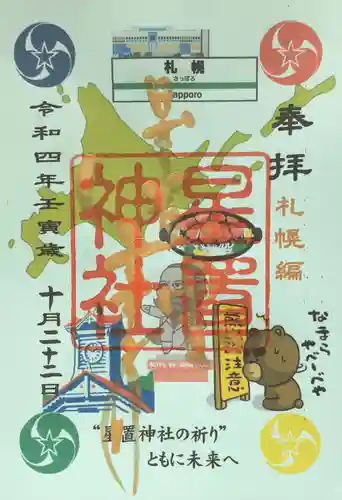 札幌
さっぽろ
Sapporo
奉拝
札幌編
星置神社
令和四年壬寅歳
十月二十二日
注意
なまらきびーべや
"星置神社の祈り"
ともに未来へ